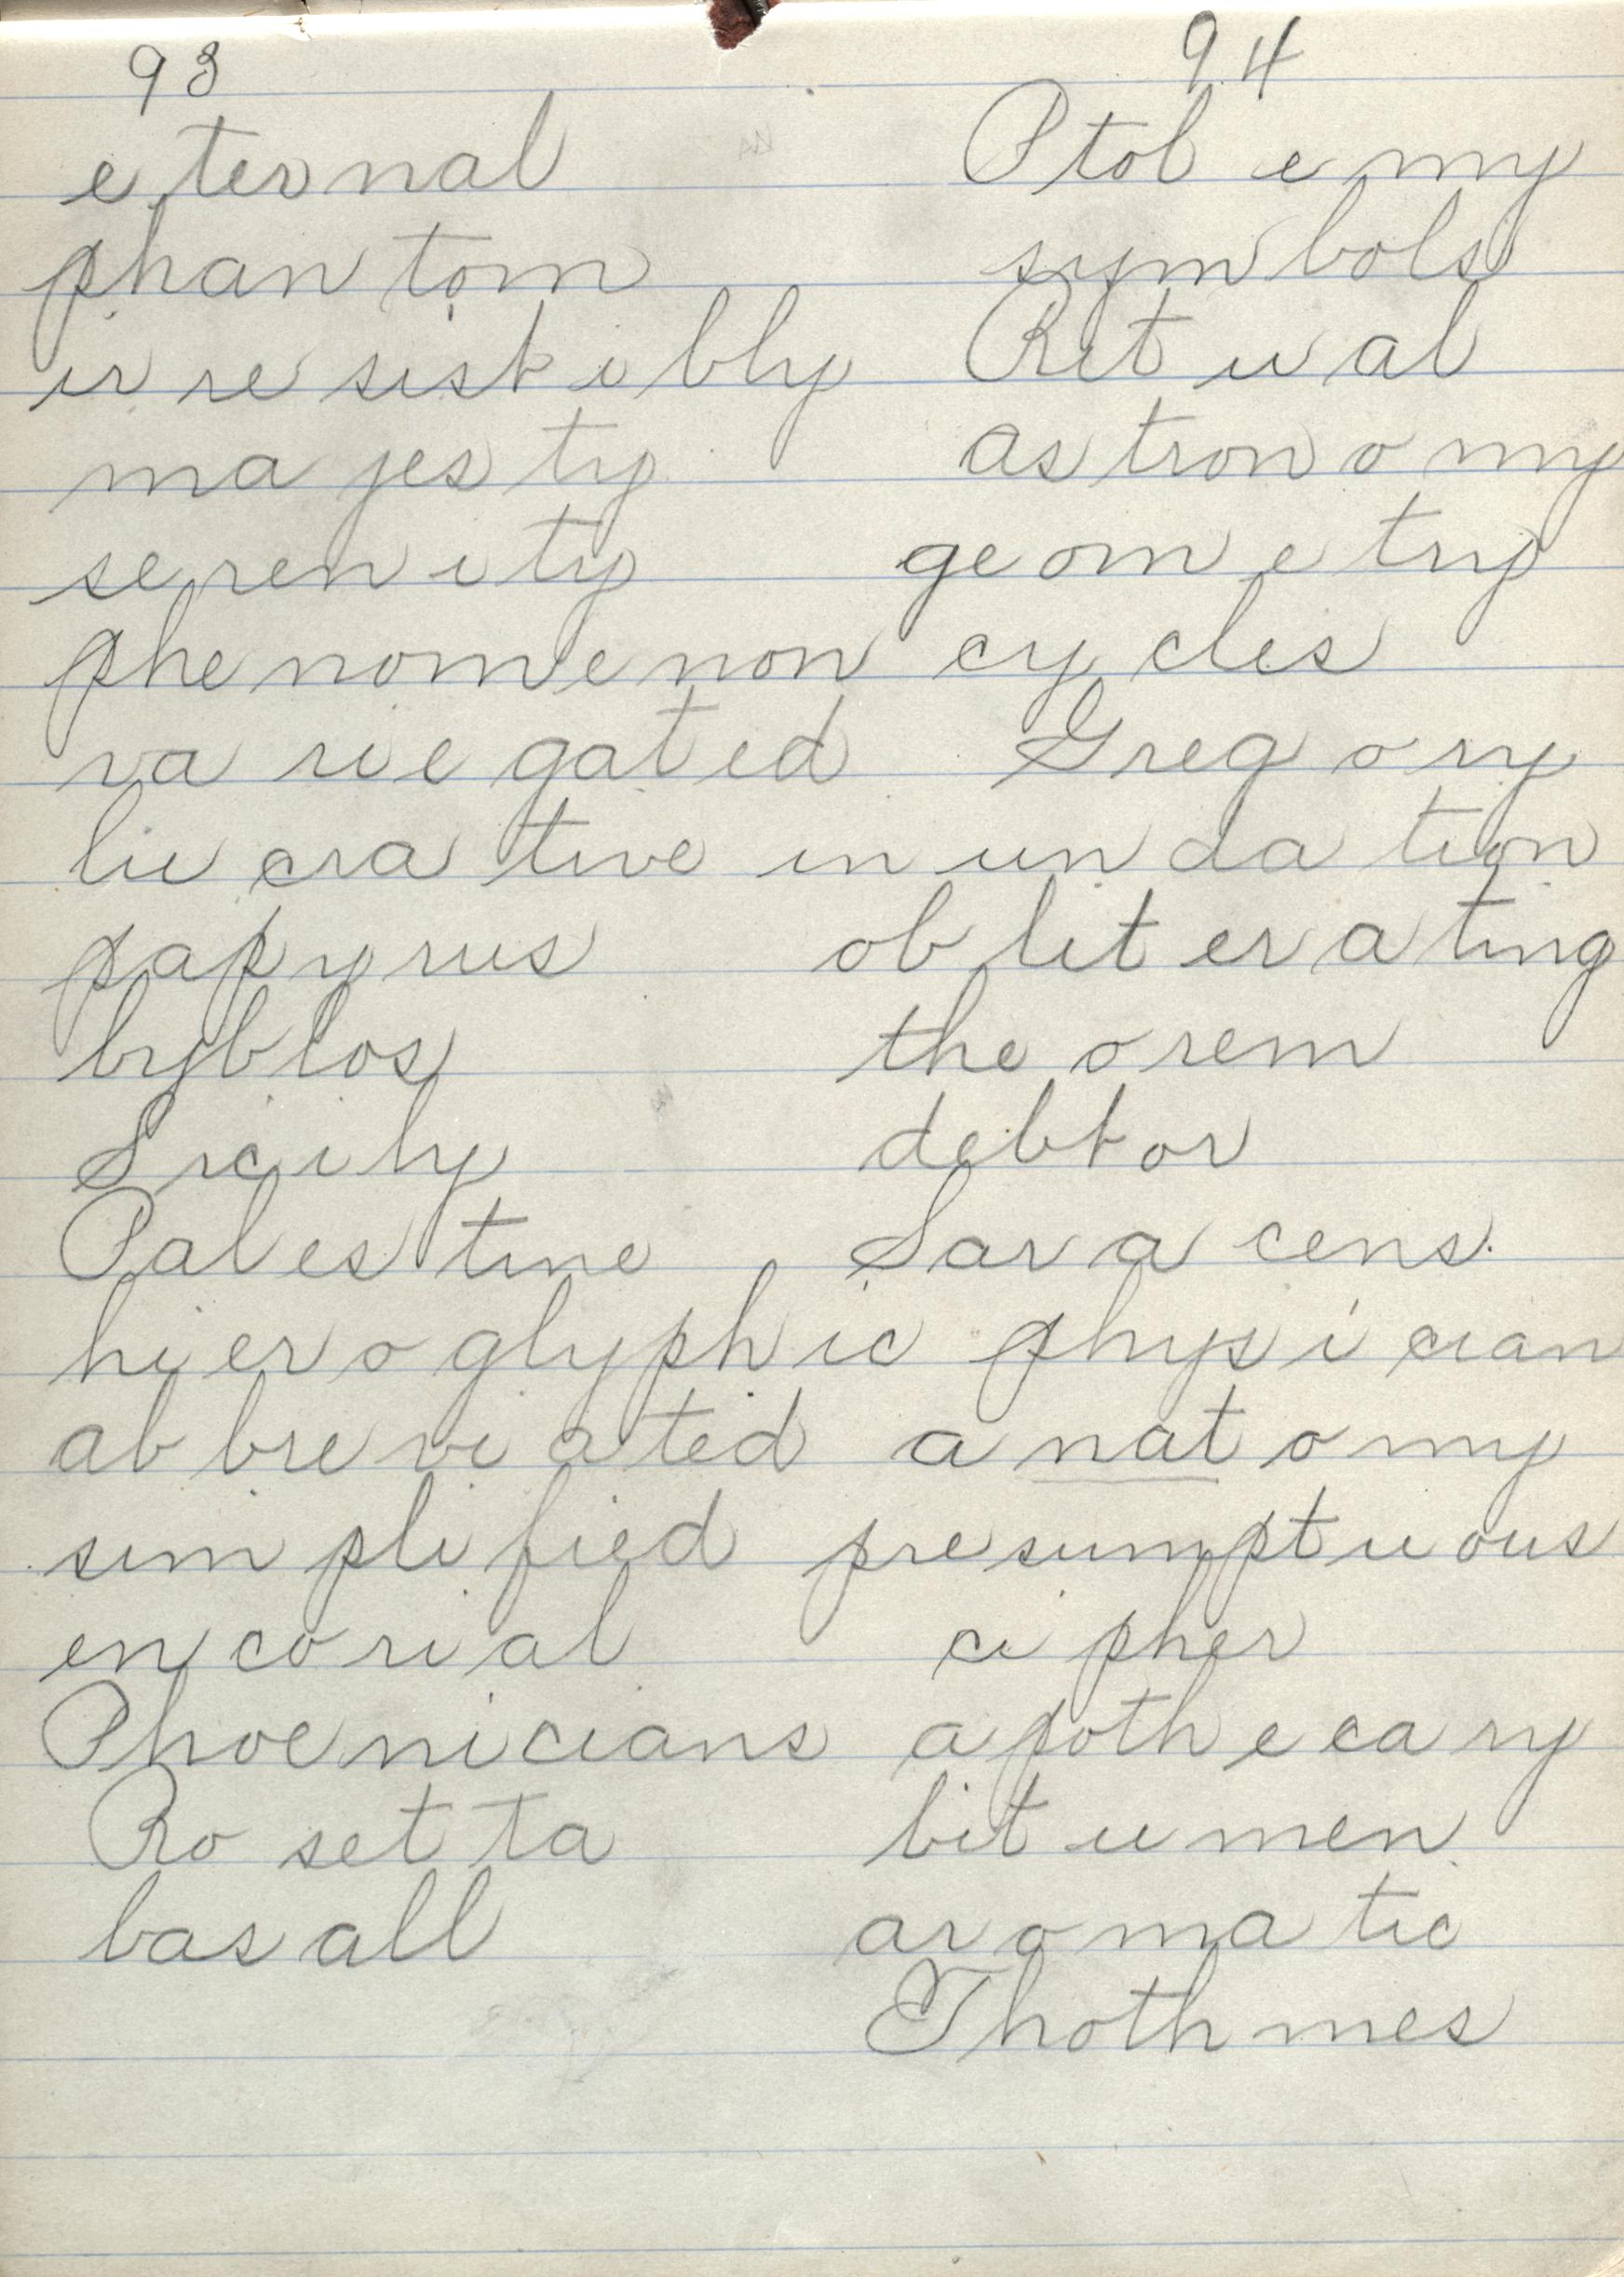 93
e ter nal
phan tom
ir re sist i bly
ma jes ty
se ren i ty
phe nom e non
va ri e gat ed
lu cra tive
pap y rus
byb los
Sic i ly
Pal es tine
hi er o glyph ic
ab bre vi a ted
sim pli fied
en co ri al
Phoe ni cians
Ro set ta
bas all
94
Ptol e my
sym bols
Rit u al
as tron o my
ge om e try
cy cles
Greg o ry
in un da tion
ob lit er a ting
the o rem
debt or
Sar a cens.
phys i cian
a nat o my
pre sumpt u ous
ci pher
a poth e ca ry
bit u men
ar o ma tic
Thoth mes